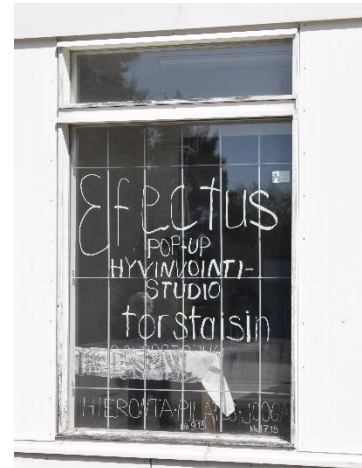 Efectus
POP-UP
HYVINVOINTI-
STUDIO
torstaisin
HIERONTA·PILATES·JOOGA
klo 9.15 klo 17.15